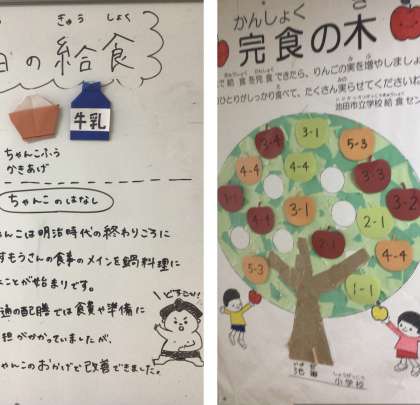 きゅう しょく
日の給食
牛乳
ちゃんこふう
かきあげ
ちゃんこのはなし
んこは明治時代の終わりごろに
すもうさんの食事のメインを鍋料理に
ことが始まりです。
通の配膳では食費や準備に
担がかかっていましたが、
ゃんこのおかげで改善できました。
どすこい!
かんしょく き
完食の木
で給食を完食できたら、りんごの実を増やしましょ
ひとりがしっかり食べて、たくさん実らせてくださいね
池田市立学校給食セン
3-4
3-1
5-3
4-4
4-4
3-3
3-1
3-2
1-1
4-4
2-1
2-1
4-4
5-3
1-1
小学校